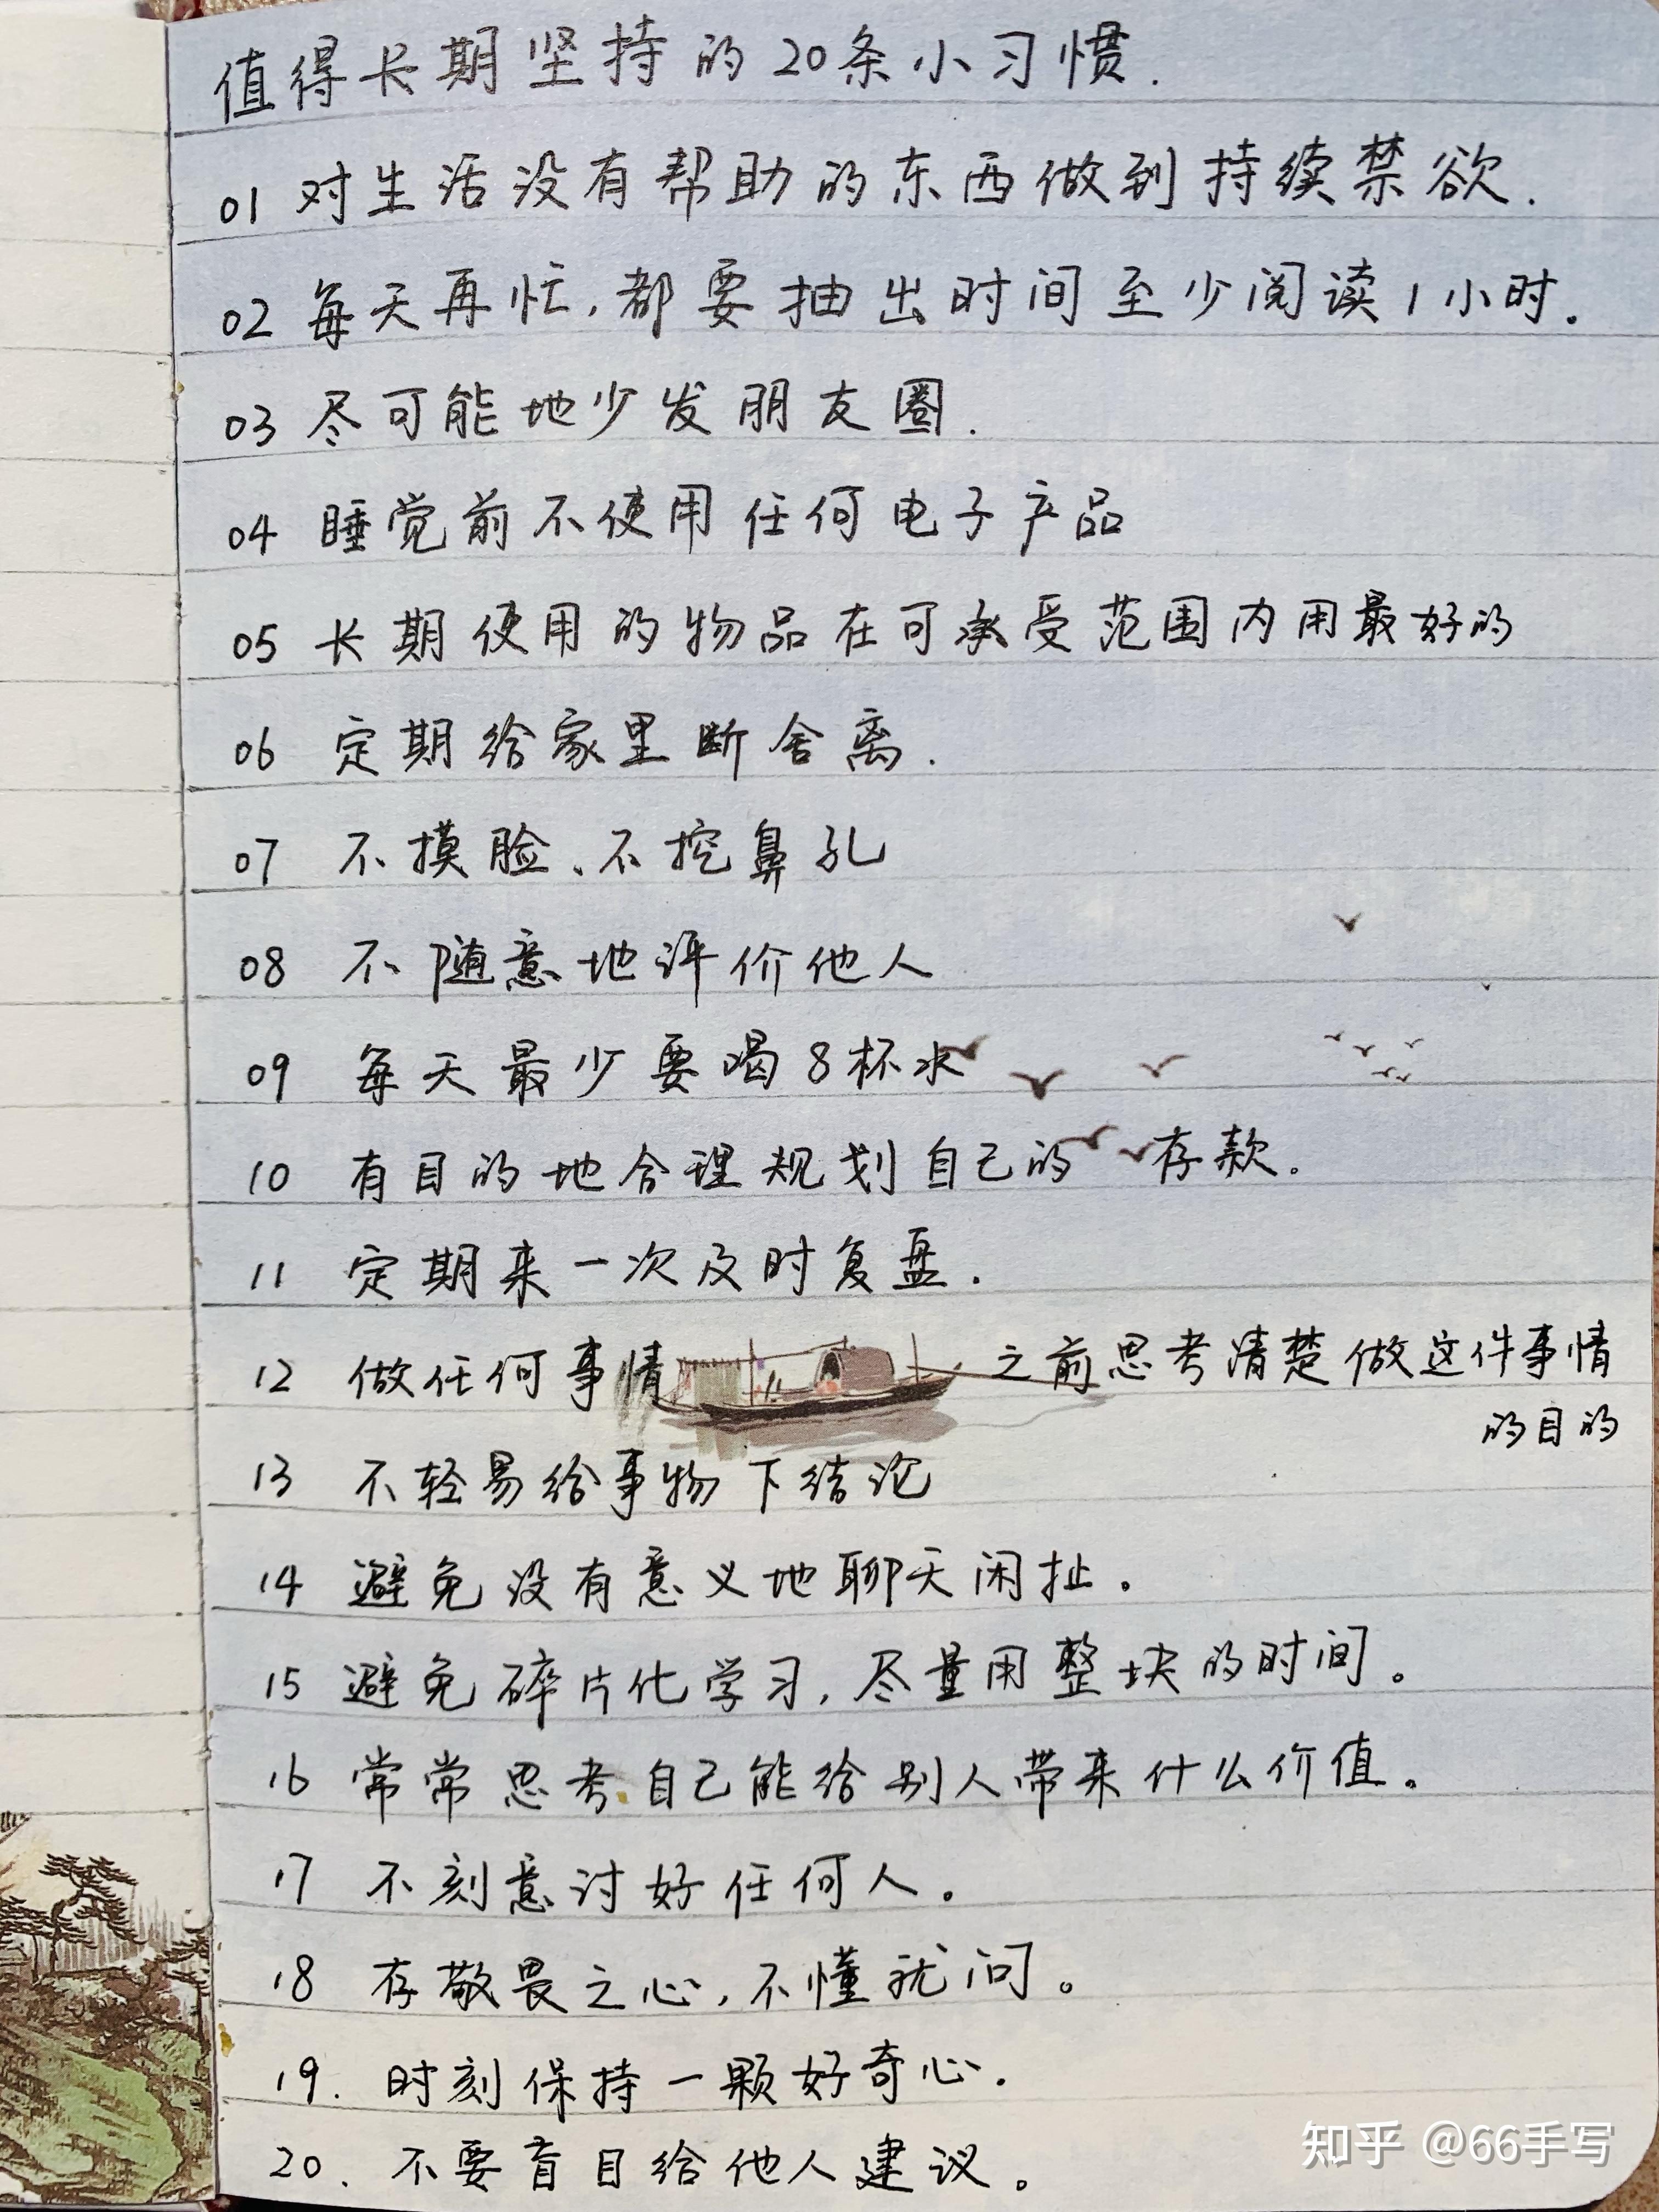 值得长期坚持的20条小习惯.
01 对生活没有帮助的东西做到持续禁欲.
02 每天再忙,都要抽出时间至少阅读1小时.
03 尽可能地少发朋友圈.
04 睡觉前不使用任何电子产品
05 长期使用的物品在可承受范围内用最好的
06 定期给家里断舍离.
07 不摸脸、不挖鼻孔
08 不随意地评价他人
09 每天最少要喝8杯水
10 有目的地合理规划自己的存款.
11 定期来一次及时复盘.
12 做任何事情之前思考清楚做这件事情
的目的
13 不轻易给事物下结论
14 避免没有意义地聊天闲扯。
15 避免碎片化学习,尽量用整块的时间。
16 常常思考自己能给别人带来什么价值。
17 不刻意讨好任何人。
18 存敬畏之心,不懂就问。
19. 时刻保持一颗好奇心.
20. 不要盲目给他人建议。
知乎 @66手写